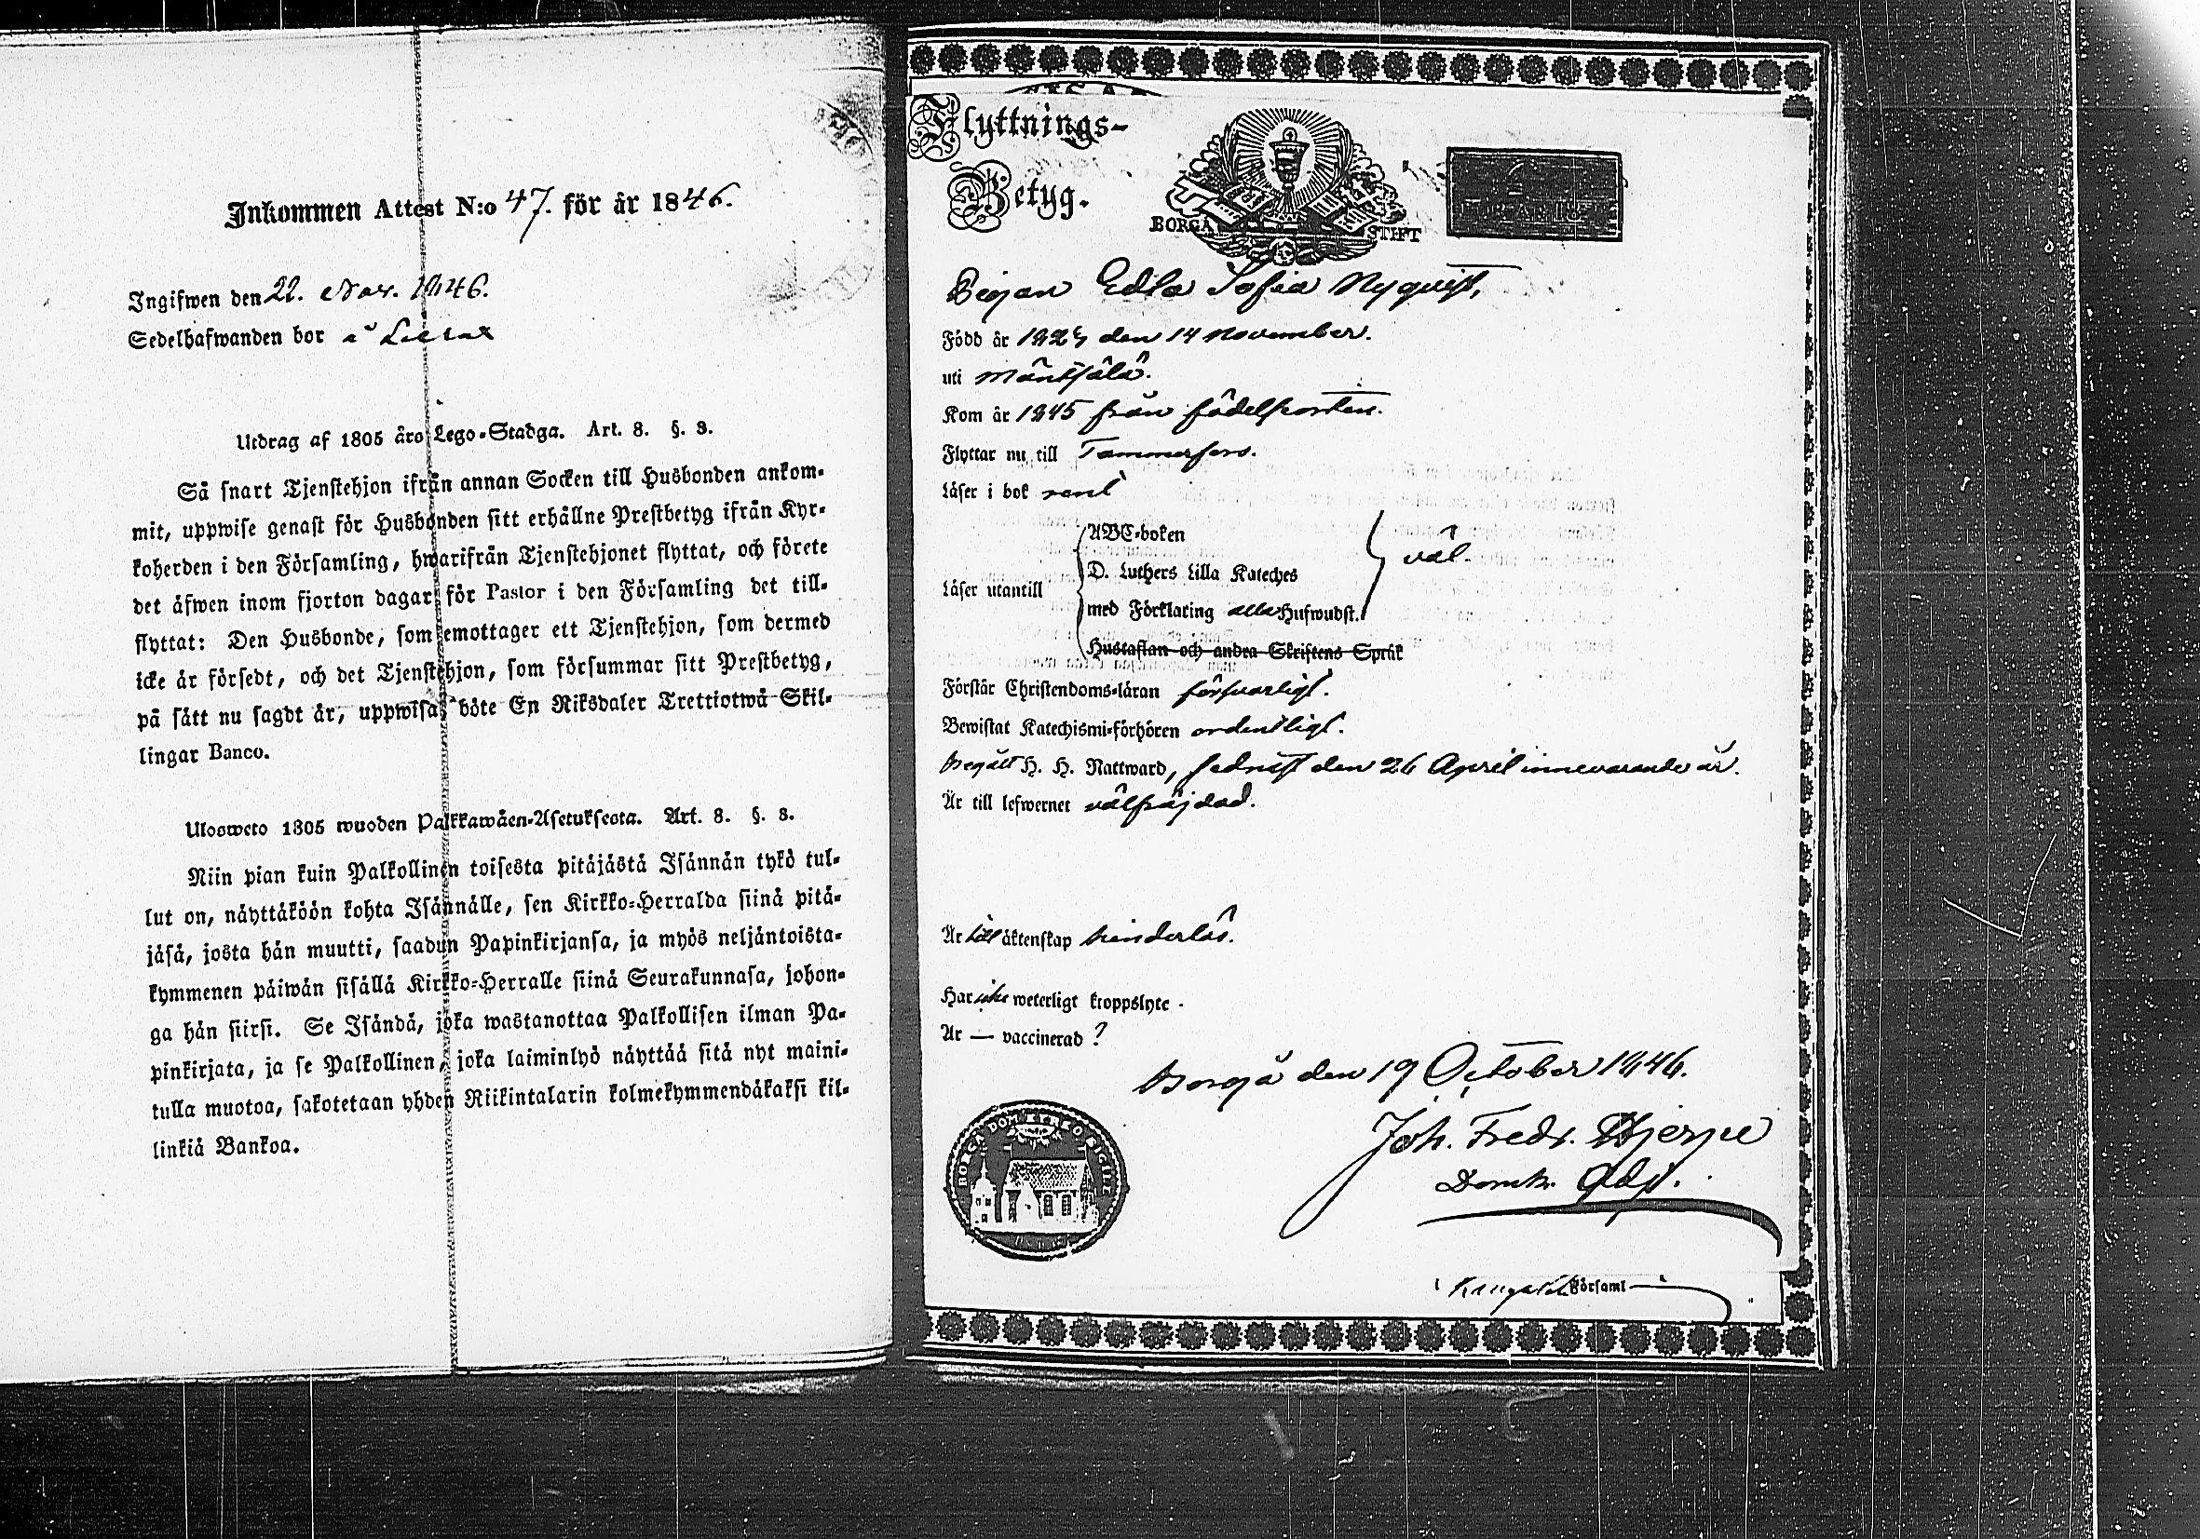 Inkommen Attest N:o 47. för år 1846.
Ingifwen den 22. Nov. 1846.
Sedelhafwanden bor å
Utdrag af 1805 års Lego-Stadga. Art. 8. §. 3.
Så snart Tjenstehjon ifrån annan Socken till Husbonden ankom-
mit, uppwise genast för Husbonden sitt erhållne Prestbetyg ifrån Kyr-
koherden i den Församling, hwarifrån Tjenstehjonet flyttat, och förete
det äfwen inom fjorton dagar för Pastor i den Församling det till-
flyttat: Den Husbonde, som emottager ett Tjenstehjon, som dermed
icke är försedt, och det Tjenstehjon, som försummar sitt Prestbetyg,
på sätt nu sagdt är, uppwisa, böte En Riksdaler Trettiotwå Skil-
lingar Banco.
Ulosweto 1805 wuoden Palkkawäen-Asetuksesta. Art. 8. §. 3.
Niin pian kuin Palkollinen toisesta pitäjästä Isännän tykö tul-
lut on, näyttäköön kohta Isännälle, sen Kirkko-Herralda siinä pitä-
jäsä, josta hän muutti, saadun Papinkirjansa, ja myös neljäntoista-
kymmenen päiwän sisällä Kirkko-Herralle siinä Seurakunnasa, johon-
ga hän siirsi. Se Isändä, joka wastanottaa Palkollisen ilman Pa-
pinkirjata, ja se Palkollinen, joka laiminlyö näyttää sitä nyt maini-
tulla muotoa, sakotetaan yhden Riikintalarin kolmekymmendäkaksi kil-
linkiä Bankoa.
Flyttnings-
Betyg.
BORGÅ STIFT
Pigan Edla Sofia Nyqvist,
Född år 1825 den 14 November.
uti Mäntsälä.
Kom år 1845 från födelseorten.
Flyttar nu till Tammerfors.
Läser i bok rent
Läser utantill
ABC-boken
D. Luthers Lilla Kateches
med Förklaring alla Hufwudst.
väl.
Hustaflan och andra Skriftens Språk
Förstår Christendoms-läran försvarligt.
Bewistat Katechismi-förhören ordentligt.
Begått H. H. Nattward, sednast den 26 April innevarande år.
Är till lefwernet välfräjdad.
Är till äktenskap hinderlös.
Har icke weterligt kroppslyte.
Är — vaccinerad ?
Borgå den 19 October 1846.
Joh. Fredr. Hjerpe
Domk. Adj.
BORGÅ DOMKYRKO SIGILL
Kangasala Församl